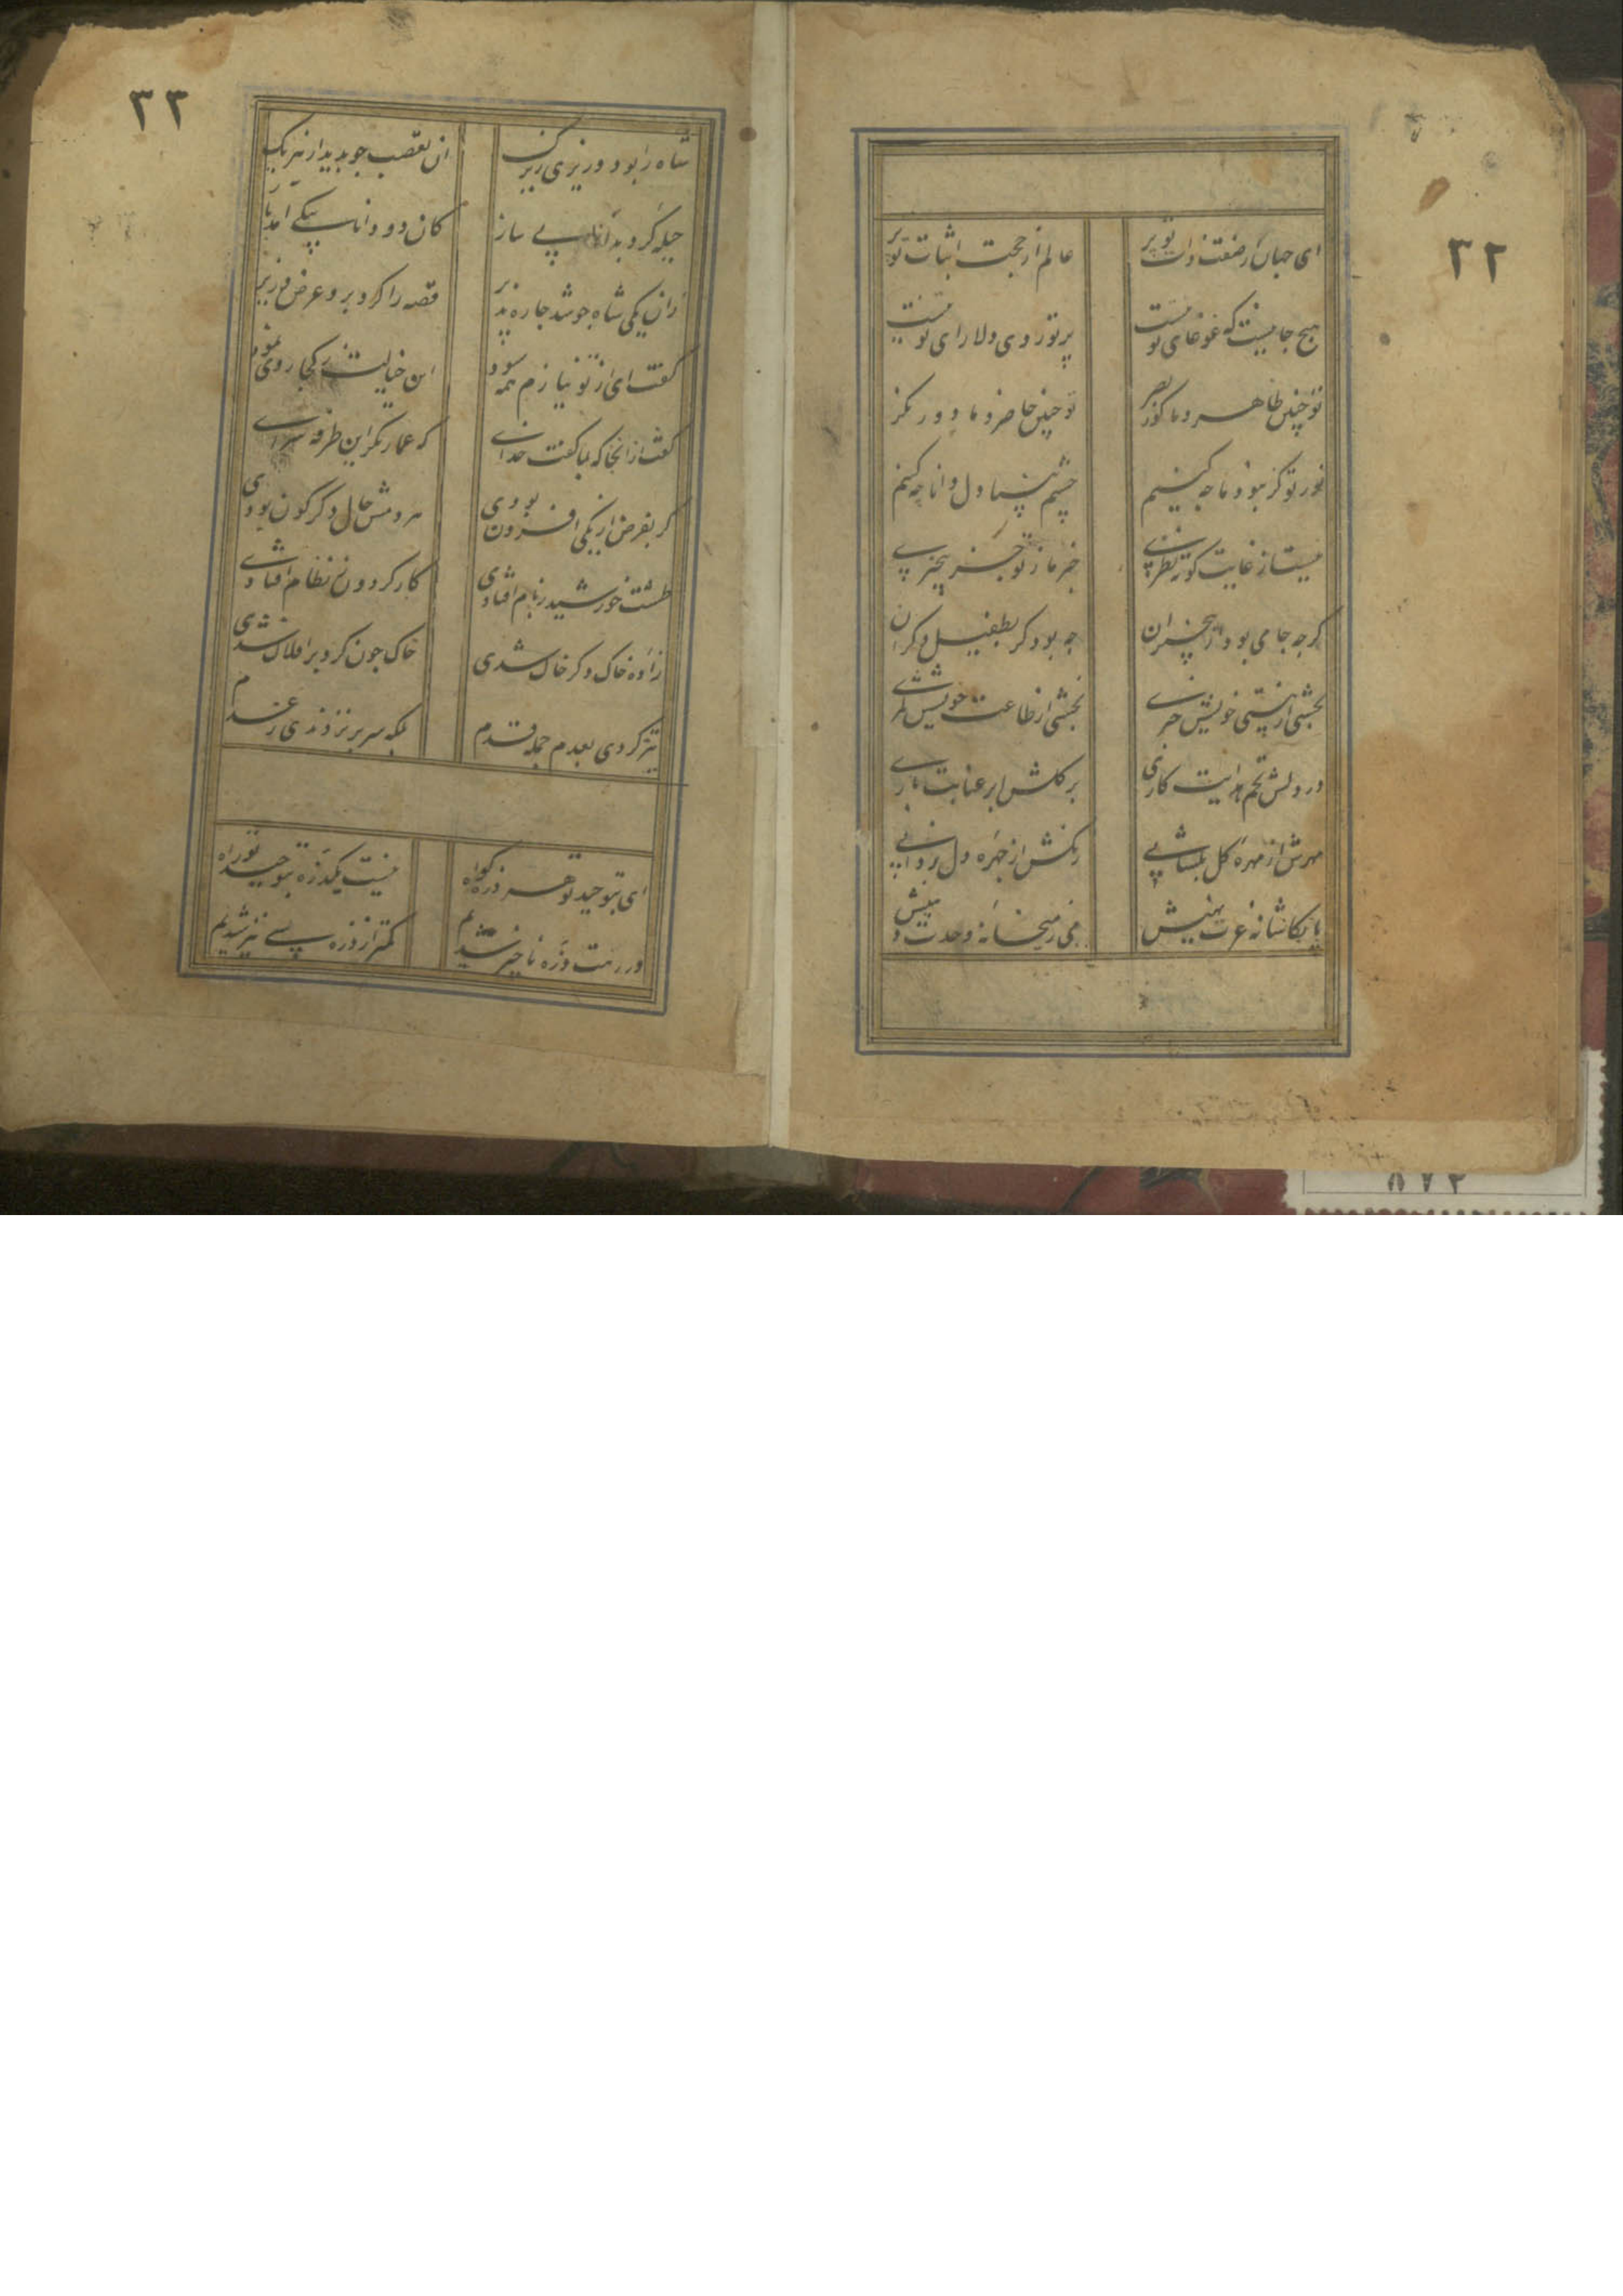 ۳۲
ای جهان از صفت ذات تو پر
عالم از حجت اثبات تو پر
هیچ جا نیست که غوغای تو نیست
پرتو روی دلارای تو نیست
تو چنین ظاهر و ما کور بصر
تو چنین حاضر و ما دور نگر
نور تو گر نبود ما چه کنیم
چشم بینا دل دانا چه کنیم
نیست از غایت کوته نظری
خبر ما ز تو جز بیخبری
گرچه جامی بود از بیخبران
چه بود گر بطفیل دگران
بخشی از هستی خویش خبری
بخشی از طاعت خویش
در دلش تخم هدایت کاری
بر گلش ابر عنایت باری
مهرش از مهره گل بگشایی
زنگش از چهره دل بزدایی
پا بکاشانه عزت نهیش
می ز میخانه وحدت دهیش
۳۳
شاه را بود وزیری زیرک
ان تعصب چو بدید از هر یک
حیله کرد بدانایی ساز
کان دو دانا بیکی آمد باز
زان یکی شاه چو شد چاره پذیر
قصه را کرد برو عرض وزیر
گفت ای از تو نیازم همه سود
این خیالت ز کجا روی نمود
گفت از انجا که بما گفت خدای
که عمارتگر این طرفه سرای
گر بفرض از یکی افزون بودی
هر دمش حال دگرگون بودی
طشت خورشید ز بام افتادی
کار گردون ز نظام افتادی
زاده خاک دگر خاک شدی
خاک چون گرد بر افلاک شدی
تیز کردی بعدم جمله قدم
بلکه سر بر نزدندی ز عدم
ای بتوحید تو هر ذره گواه
نیست یکذره بتوحید تو راه
در رهت ذره ناچیز شدیم
کمتر از ذره بسی نیز شدیم
۸۷۲